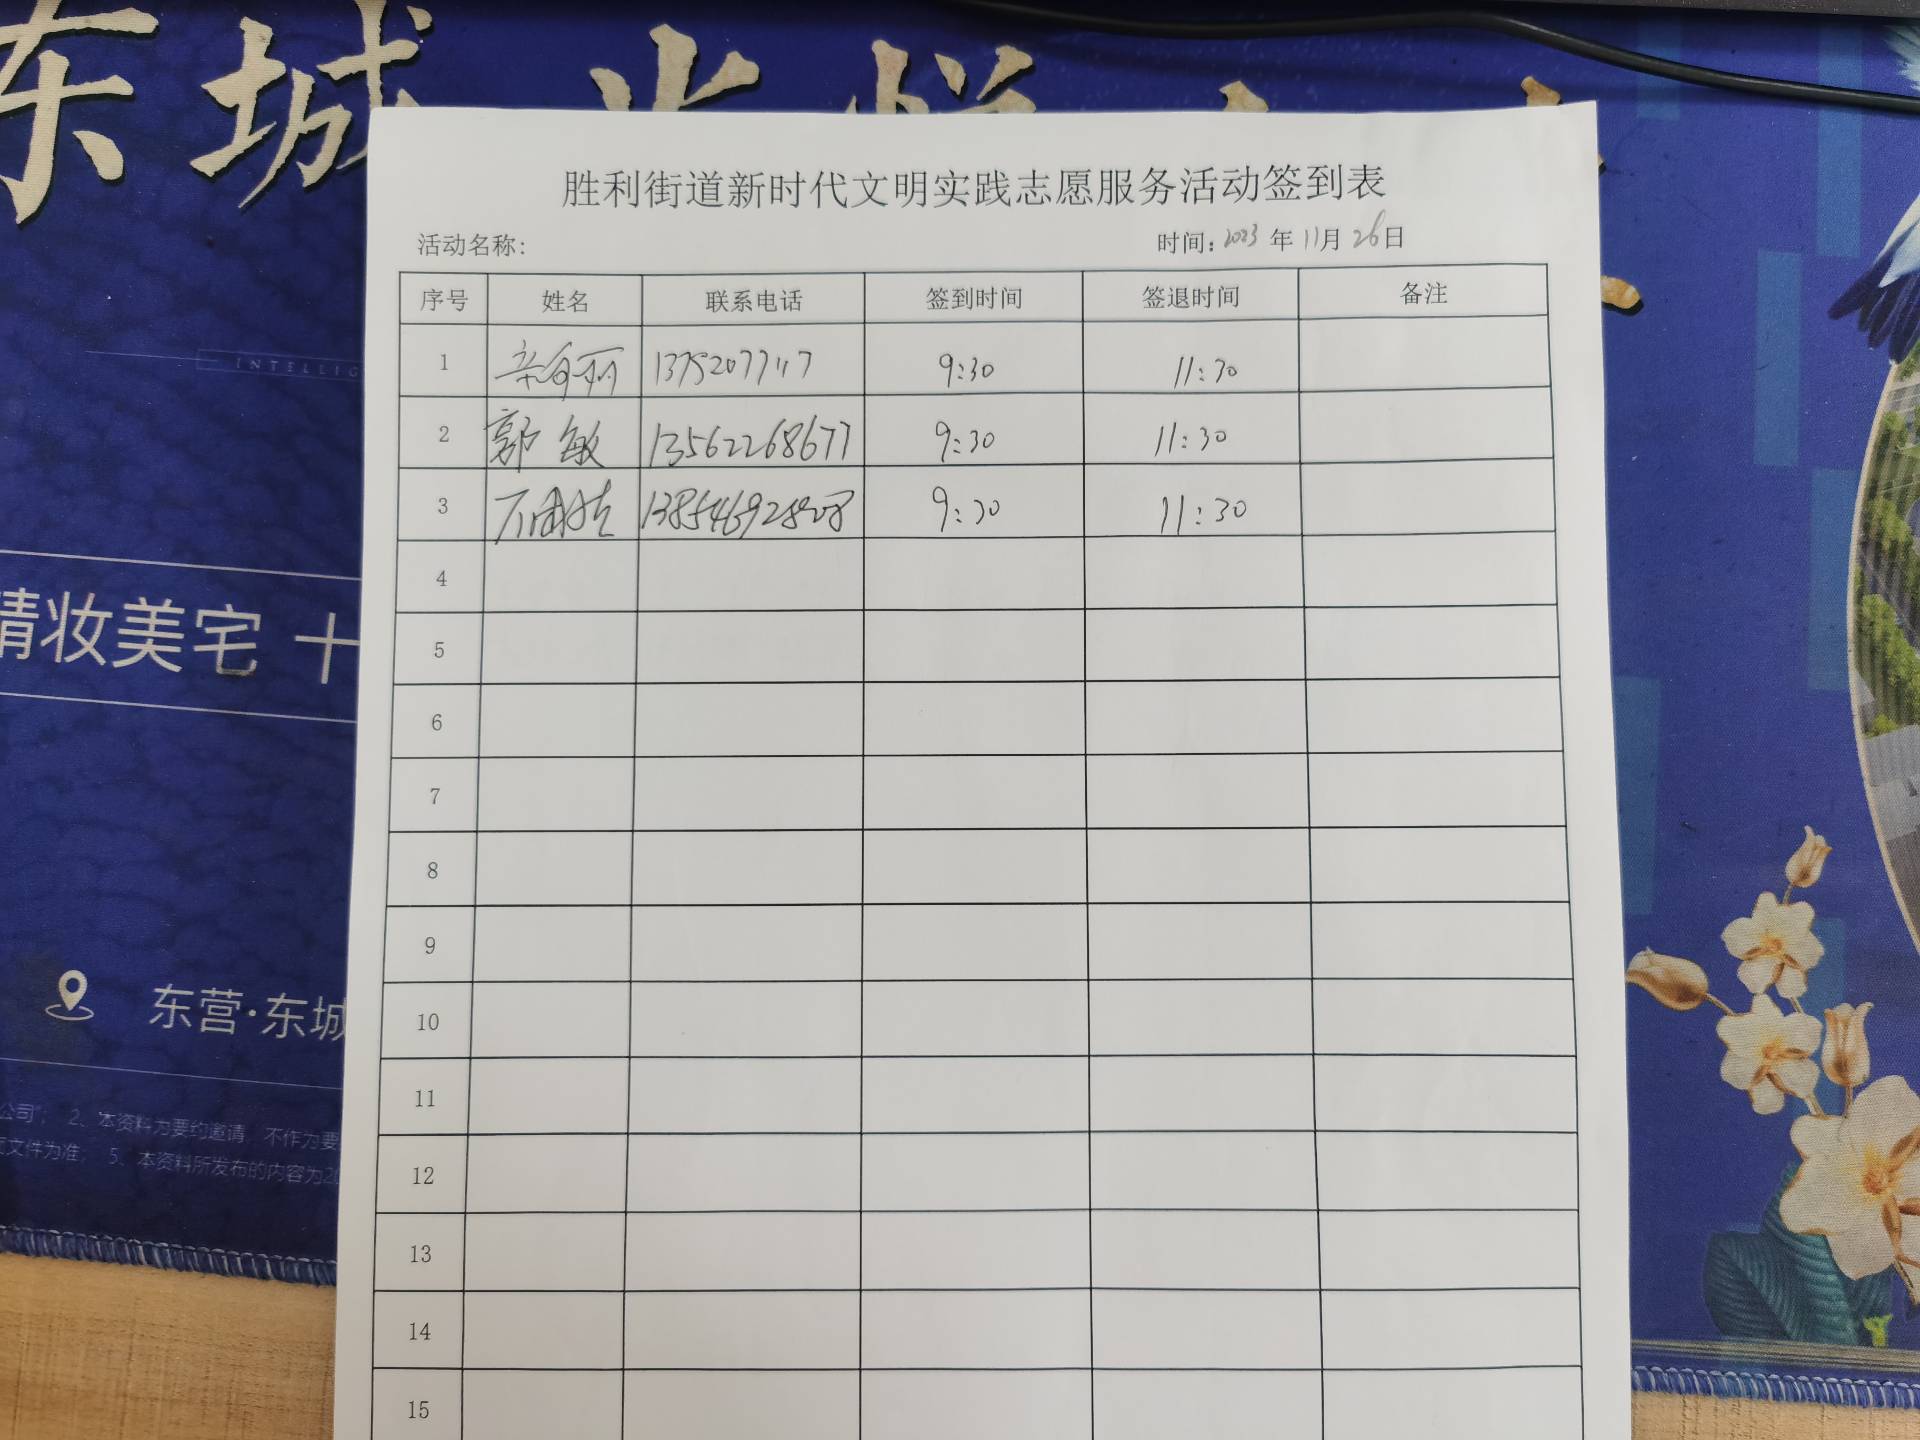 东城
INTELLIG
精妆美宅 十
东营·东城
公司"; 2、本资料为要约邀请,不作为要
文件为准; 5、本资料所发布的内容为20
胜利街道新时代文明实践志愿服务活动签到表
活动名称: 时间: 2023 年 11月 26日
序号 姓名 联系电话 签到时间 签退时间 备注
1 9:30 11:30
2 郭敏 13562268677 9:30 11:30
3 9:30 11:30
4
5
6
7
8
9
10
11
12
13
14
15